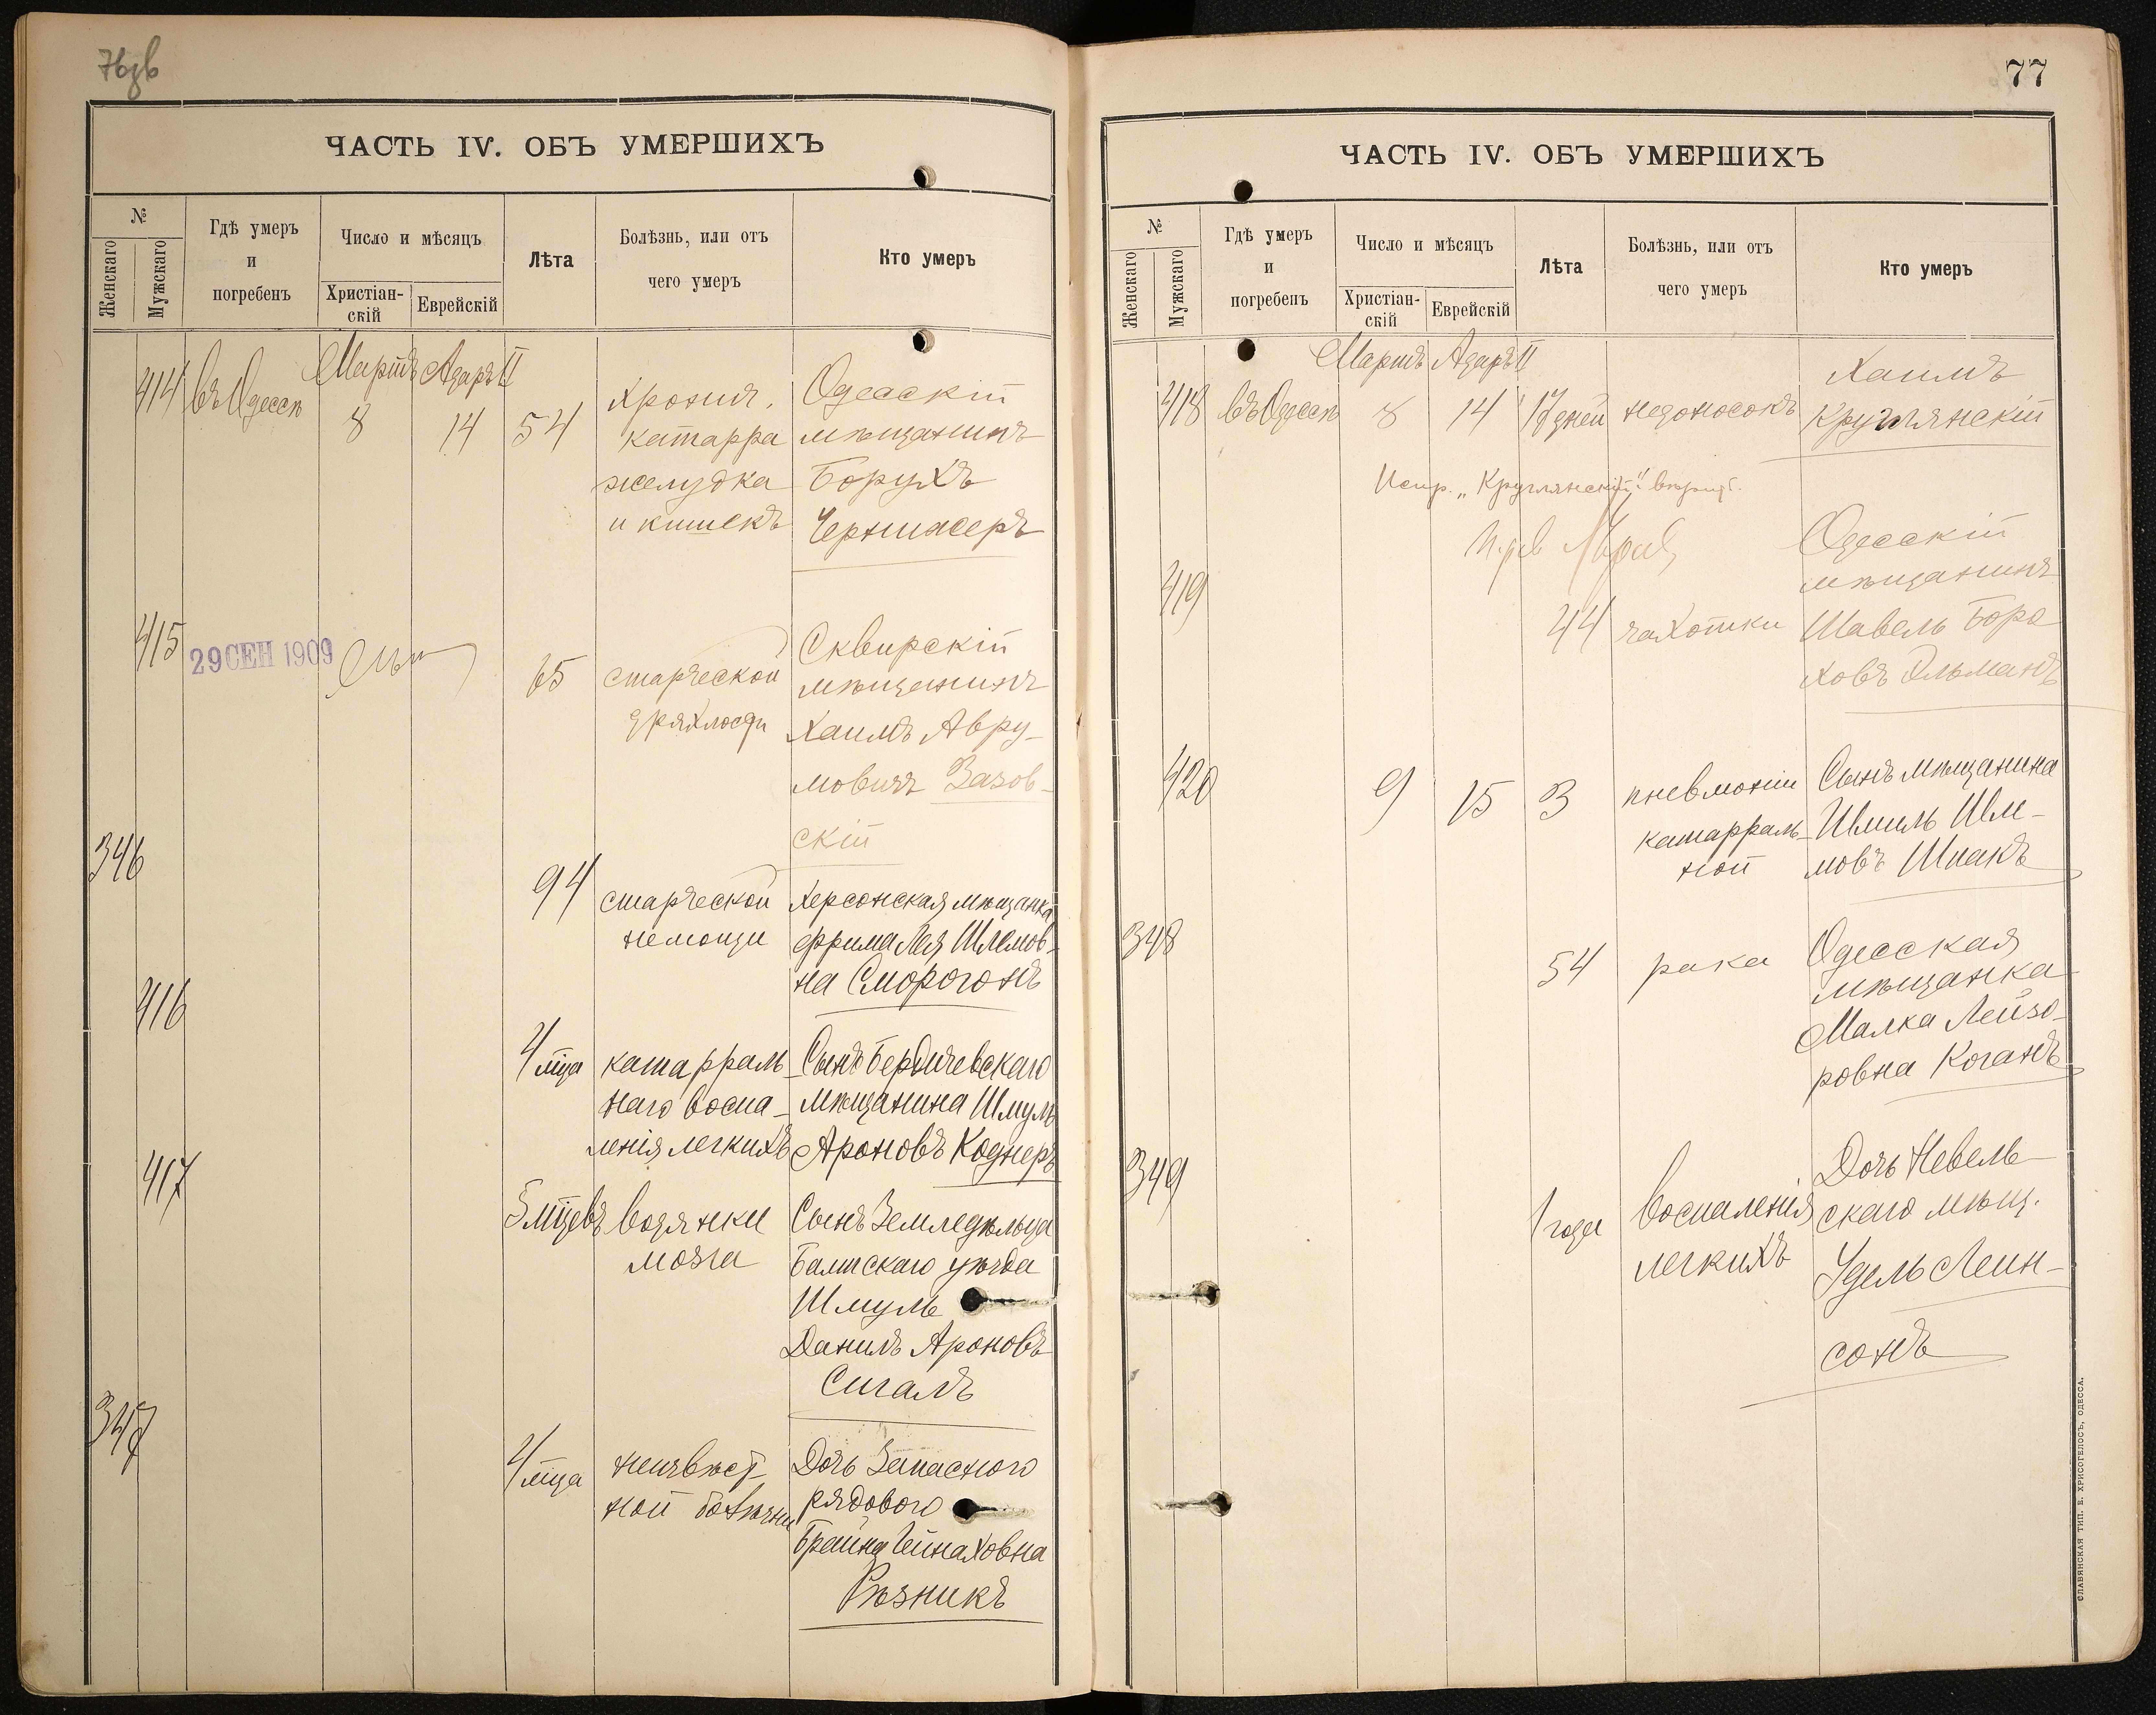 ЧАСТЬ IV. ОБЪ УМЕРШИХЪ
№
Женскаго
Мужскаго
Гдѣ умеръ
и
погребенъ
Число и мѣсяцъ
Христіан-
скій
Еврейскій
Лѣта
Болѣзнь, или отъ
чего умеръ
Кто умеръ
Мартъ Адаръ II
414 въ Одессѣ 8 14 54
Хронич.
катарра
желудка
и кишекъ
Одесскій
мѣщанинъ
Борухъ
415
29 СЕН 1909
65
старческой
дряхлости
Сквирскій
мѣщанинъ
Хаимъ Авру-
мовичъ Зазов-
скій
346
94
старческой
немощи
Херсонская мѣщанка
Фрима Лея Шлемов-
на Сморогонъ
416
4 мца
катарраль-
наго воспа-
ленія легкихъ
Сынъ Бердичевскаго
мѣщанина Шмуль
Ароновъ Коднеръ
417
5 мцевъ
водянки
мозга
Сынъ Земледѣльца
Балтскаго уѣзда
Шмуль
Данилъ Ароновъ
Сигалъ
347
4 мца
неизвѣст-
ной болѣзни
Дочь Запаснаго
рядового
Брайна
Рѣзникъ
77
ЧАСТЬ IV. ОБЪ УМЕРШИХЪ
№
Женскаго
Мужскаго
Гдѣ умеръ
и
погребенъ
Число и мѣсяцъ
Христіан-
скій
Еврейскій
Лѣта
Болѣзнь, или отъ
чего умеръ
Кто умеръ
Мартъ Адаръ II
418 въ Одессѣ 8 14 17 дней
недоносокъ
Хаимъ
Круглянскій
Испр. „Круглянскій"
419
44
чахотки
Одесскій
мѣщанинъ
Шавель Боро
ховъ Эльманъ
420
9 15 3
пневмоніи
катарраль-
ной
Сынъ мѣщанина
Шпакъ
348
54
рака
Одесская
мѣщанка
Малка Лейзо-
ровна Коганъ
349
1 года
воспаленія
легкихъ
Дочь Невель-
скаго мѣщ.
Удель Леин-
сонъ
СЛАВЯНСКАЯ ТИП. Е. ХРИСОГЕЛОСЪ, ОДЕССА.